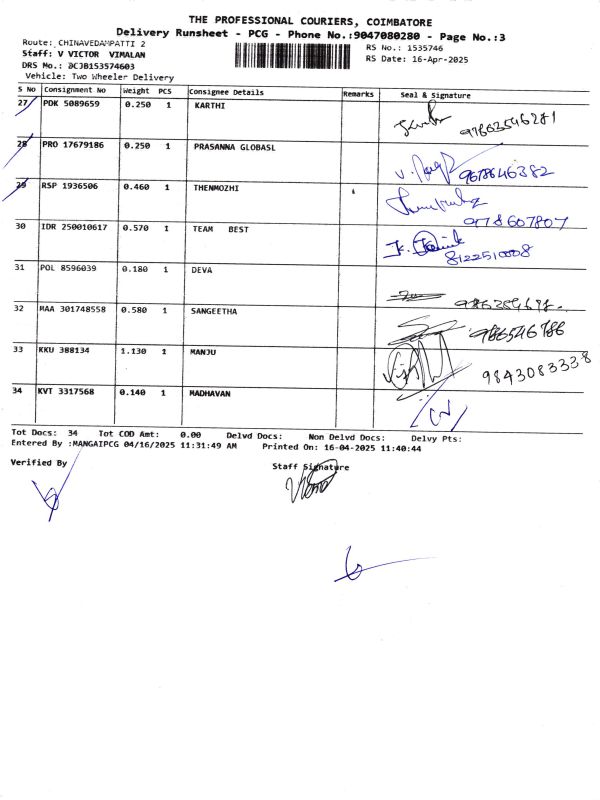 THE PROFESSIONAL COURIERS, COIMBATORE
Delivery Runsheet - PCG - Phone No.:9047080280 - Page No.:3
Route: CHINAVEDAMPATTI 2
RS No.: 1535746
Staff: V VICTOR VIMALAN
RS Date: 16-Apr-2025
DRS No.: BCJB153574603
Vehicle: Two Wheeler Delivery
S No Consignment No Weight PCS Consignee Details Remarks Seal & Signature
27 PDK 5089659 0.250 1 KARTHI
97863546281
28 PRO 17679186 0.250 1 PRASANNA GLOBASL
9678646382
29 RSP 1936506 0.460 1 THENMOZHI
9778607807
30 IDR 250010617 0.570 1 TEAM BEST
8122510008
31 POL 8596039 0.180 1 DEVA
32 MAA 301748558 0.580 1 SANGEETHA
986546786
33 KKU 388134 1.130 1 MANJU
9843083338
34 KVT 3317568 0.140 1 MADHAVAN
Tot Docs: 34 Tot COD Amt: 0.00 Delvd Docs: Non Delvd Docs: Delvy Pts:
Entered By :MANGAIPCG 04/16/2025 11:31:49 AM Printed On: 16-04-2025 11:40:44
Verified By
Staff Signature